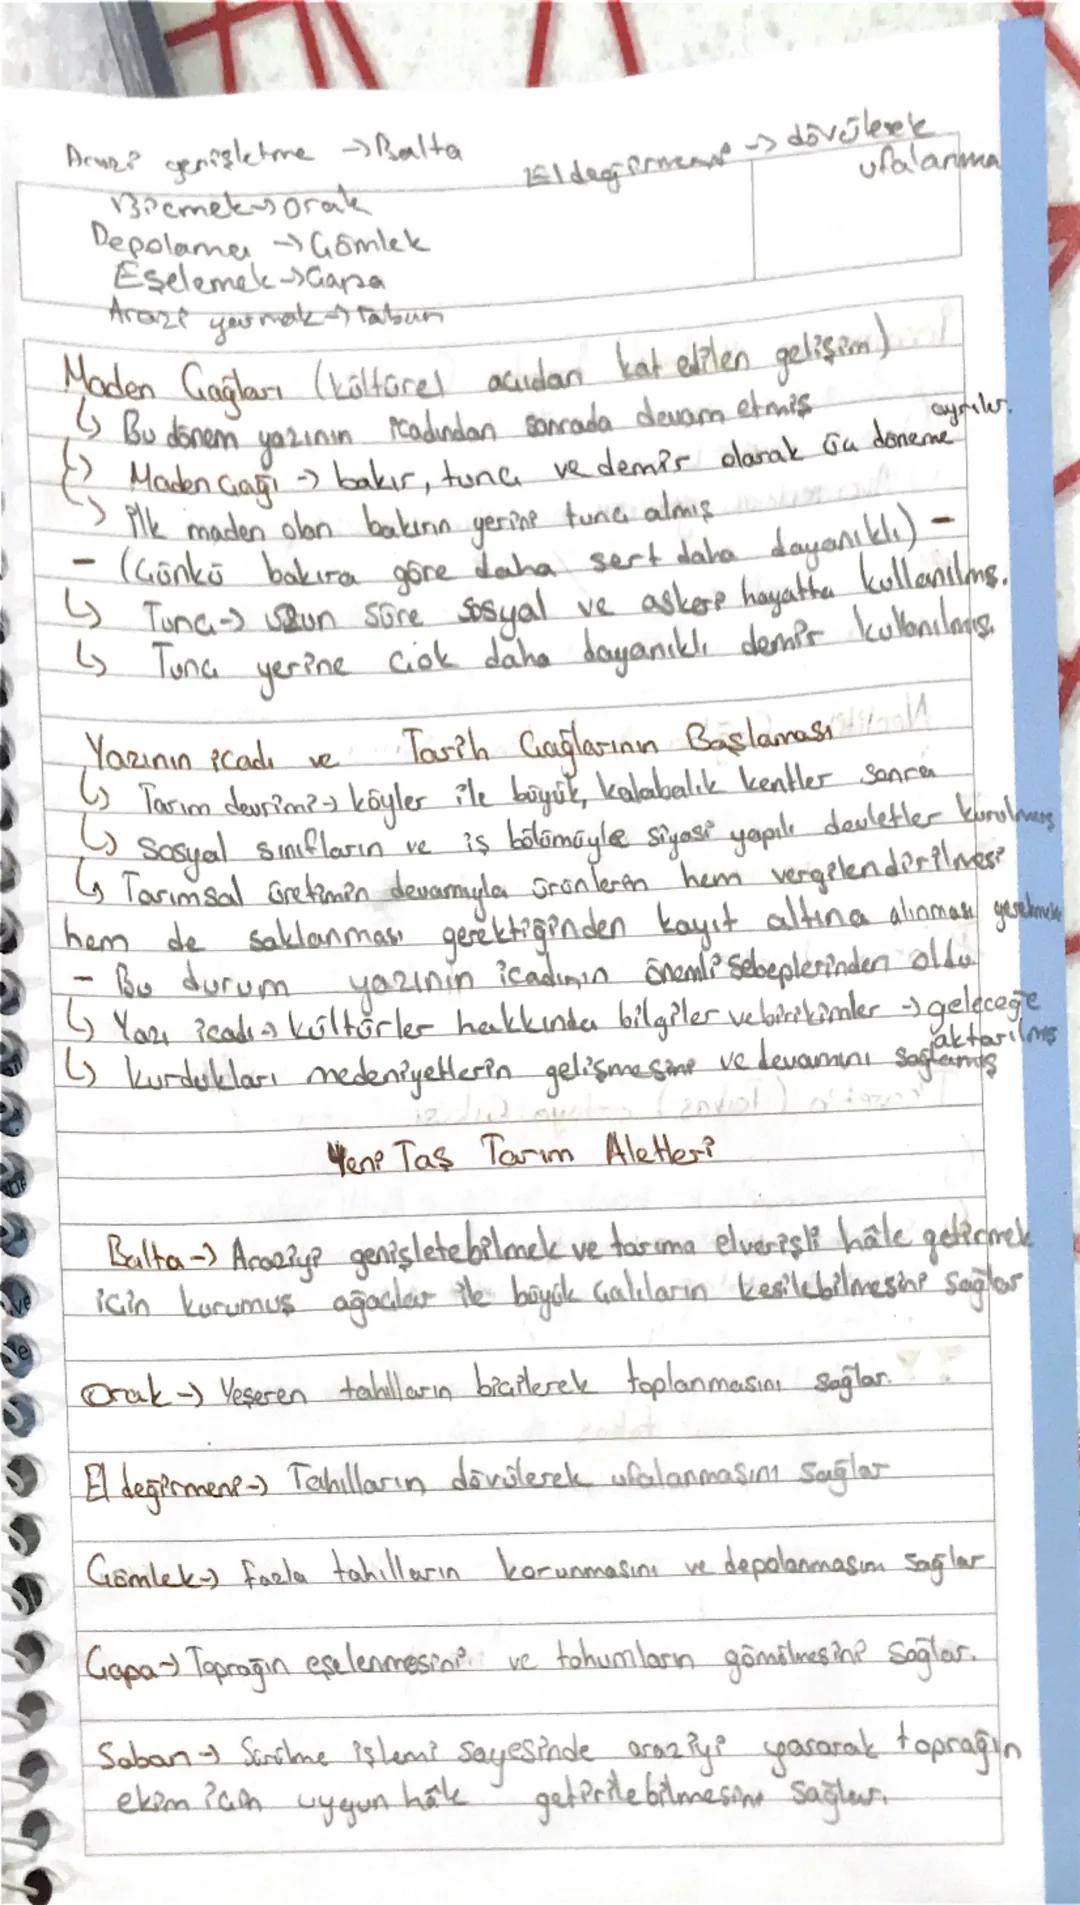 Arazi genişletme → Balta
El değirmeni → dövülerek
ufalanma
Biçmek → Orak
Depolama → Çömlek
Eşelemek → Çapa
Arazi yarmak → Saban
Maden Çağları (kültürel açıdan kat edilen gelişim)
↳ Bu dönem yazının icadından sonrada devam etmiş
↳ Maden çağı → bakır, tunç ve demir olarak üç döneme ayrılır.
↳ İlk maden olan bakırın yerini tunç almış
- (Çünkü bakıra göre daha sert daha dayanıklı) -
↳ Tunç → uzun süre sosyal ve askeri hayatta kullanılmış.
↳ Tunç yerine çok daha dayanıklı demir kullanılmış.
Yazının icadı ve Tarih Çağlarının Başlaması
↳ Tarım devrimi → köyler ile büyük, kalabalık kentler sonra
↳ Sosyal sınıfların ve iş bölümüyle siyasi yapılı devletler kurulmuş
↳ Tarımsal üretimin devamıyla ürünlerin hem vergilendirilmesi
hem de saklanması gerektiğinden kayıt altına alınması gerekmekte
- Bu durum yazının icadının önemli sebeplerinden oldu
↳ Yazı icadı → kültürler hakkında bilgiler ve birikimler → geleceğe
aktarılmış
↳ kurdukları medeniyetlerin gelişmesini ve devamını sağlamış
Yeni Taş Tarım Aletleri
Balta → Araziyi genişletebilmek ve tarıma elverişli hâle getirmek
için kurumuş ağaçlar ile büyük çalıların kesilebilmesini sağlar
Orak → Yeşeren tahılların biçilerek toplanmasını sağlar.
El değirmeni → Tahılların dövülerek ufalanmasını sağlar
Çömlek → Fazla tahılların korunmasını ve depolanmasını sağlar
Çapa → Toprağın eşelenmesini ve tohumların gömülmesini sağlar.
Saban → Sürülme işlemi sayesinde araziyi yararak toprağın
ekim için uygun hâle getirilebilmesini sağlar.